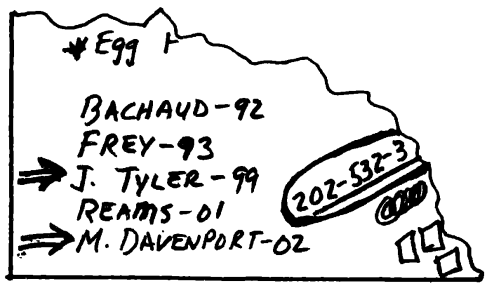 * Egg
BACHAUD-92
FREY-93
J. TYLER-99
REAMS-01
M. DAVENPORT-02
202-532-3